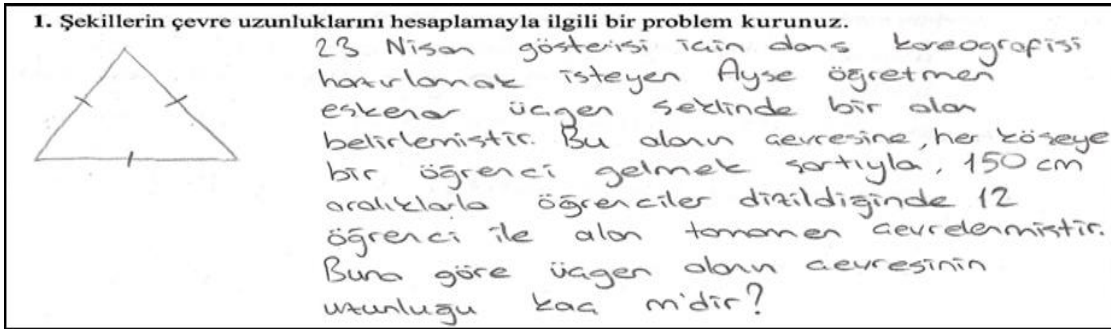 1. Şekillerin çevre uzunluklarını hesaplamayla ilgili bir problem kurunuz.
23 Nisan gösterisi için dans koreografisi
hazırlamak isteyen Ayşe öğretmen
eşkenar üçgen şeklinde bir alan
belirlemiştir. Bu alanın çevresine, her köşeye
bir öğrenci gelmek şartıyla, 150 cm
aralıklarla öğrenciler dizildiğinde 12
öğrenci ile alan tamamen çevrelenmiştir.
Buna göre üçgen alanın çevresinin
uzunluğu kaç m'dir?